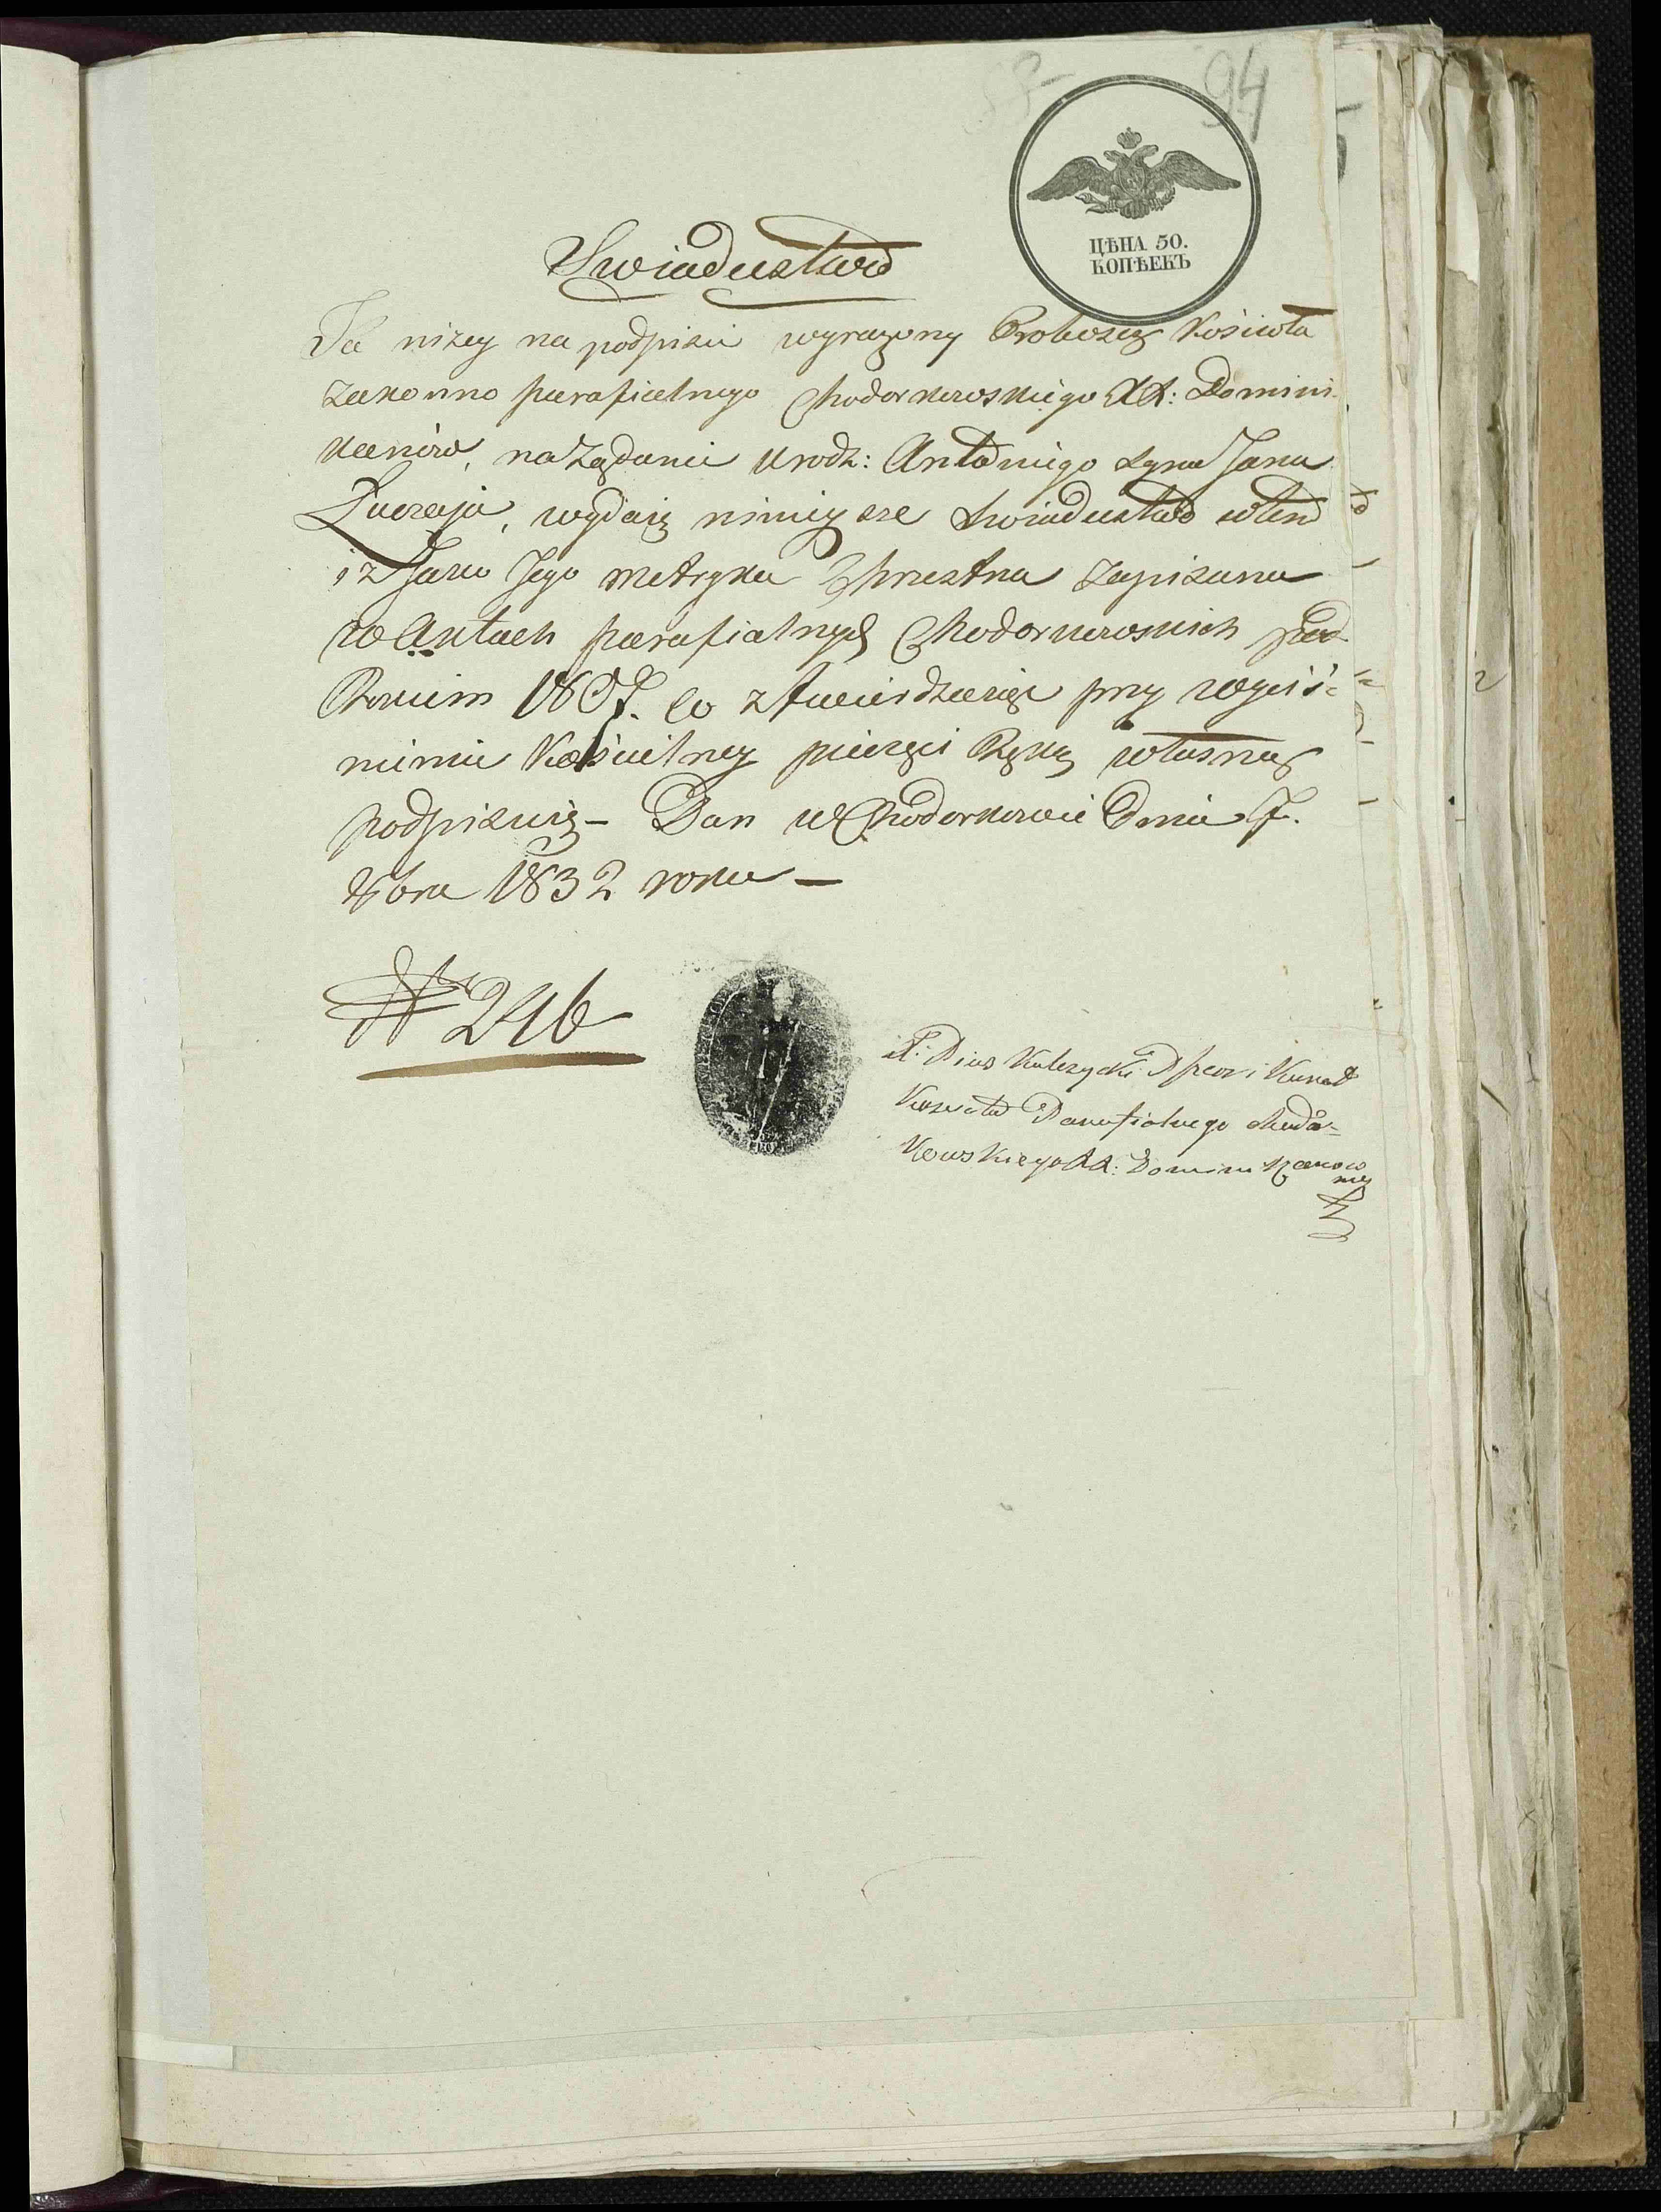 94
ЦѢНА 50.
КОПѢЕКЪ
Swiadectwo
Ja niżey na podpisie wyrażony Proboszcz Kościoła
Zakonno parafialnego Chodorkowskiego XX: Domini
kanów, na Żądanie Urodz: Antoniego syna Jana
wydaię ninieysze Swiadectwo w tem
iż Jana Jego metryka Chrzestna Zapisana
w Aktach parafialnych Chodorkowskich pod
Rokiem 1807. co ztwierdzaiąc przy wyciś-
nieniu Kościelney pieczęci Ręką własną
podpisuię – Dan w Chodorkowie Dnia 7.
1832 roku –
№ 246
X: Pius Kulczycki Przeor i Kurat
Koscioła Parafialnego Chodor-
kowskiego XX: Dominikanow
mp